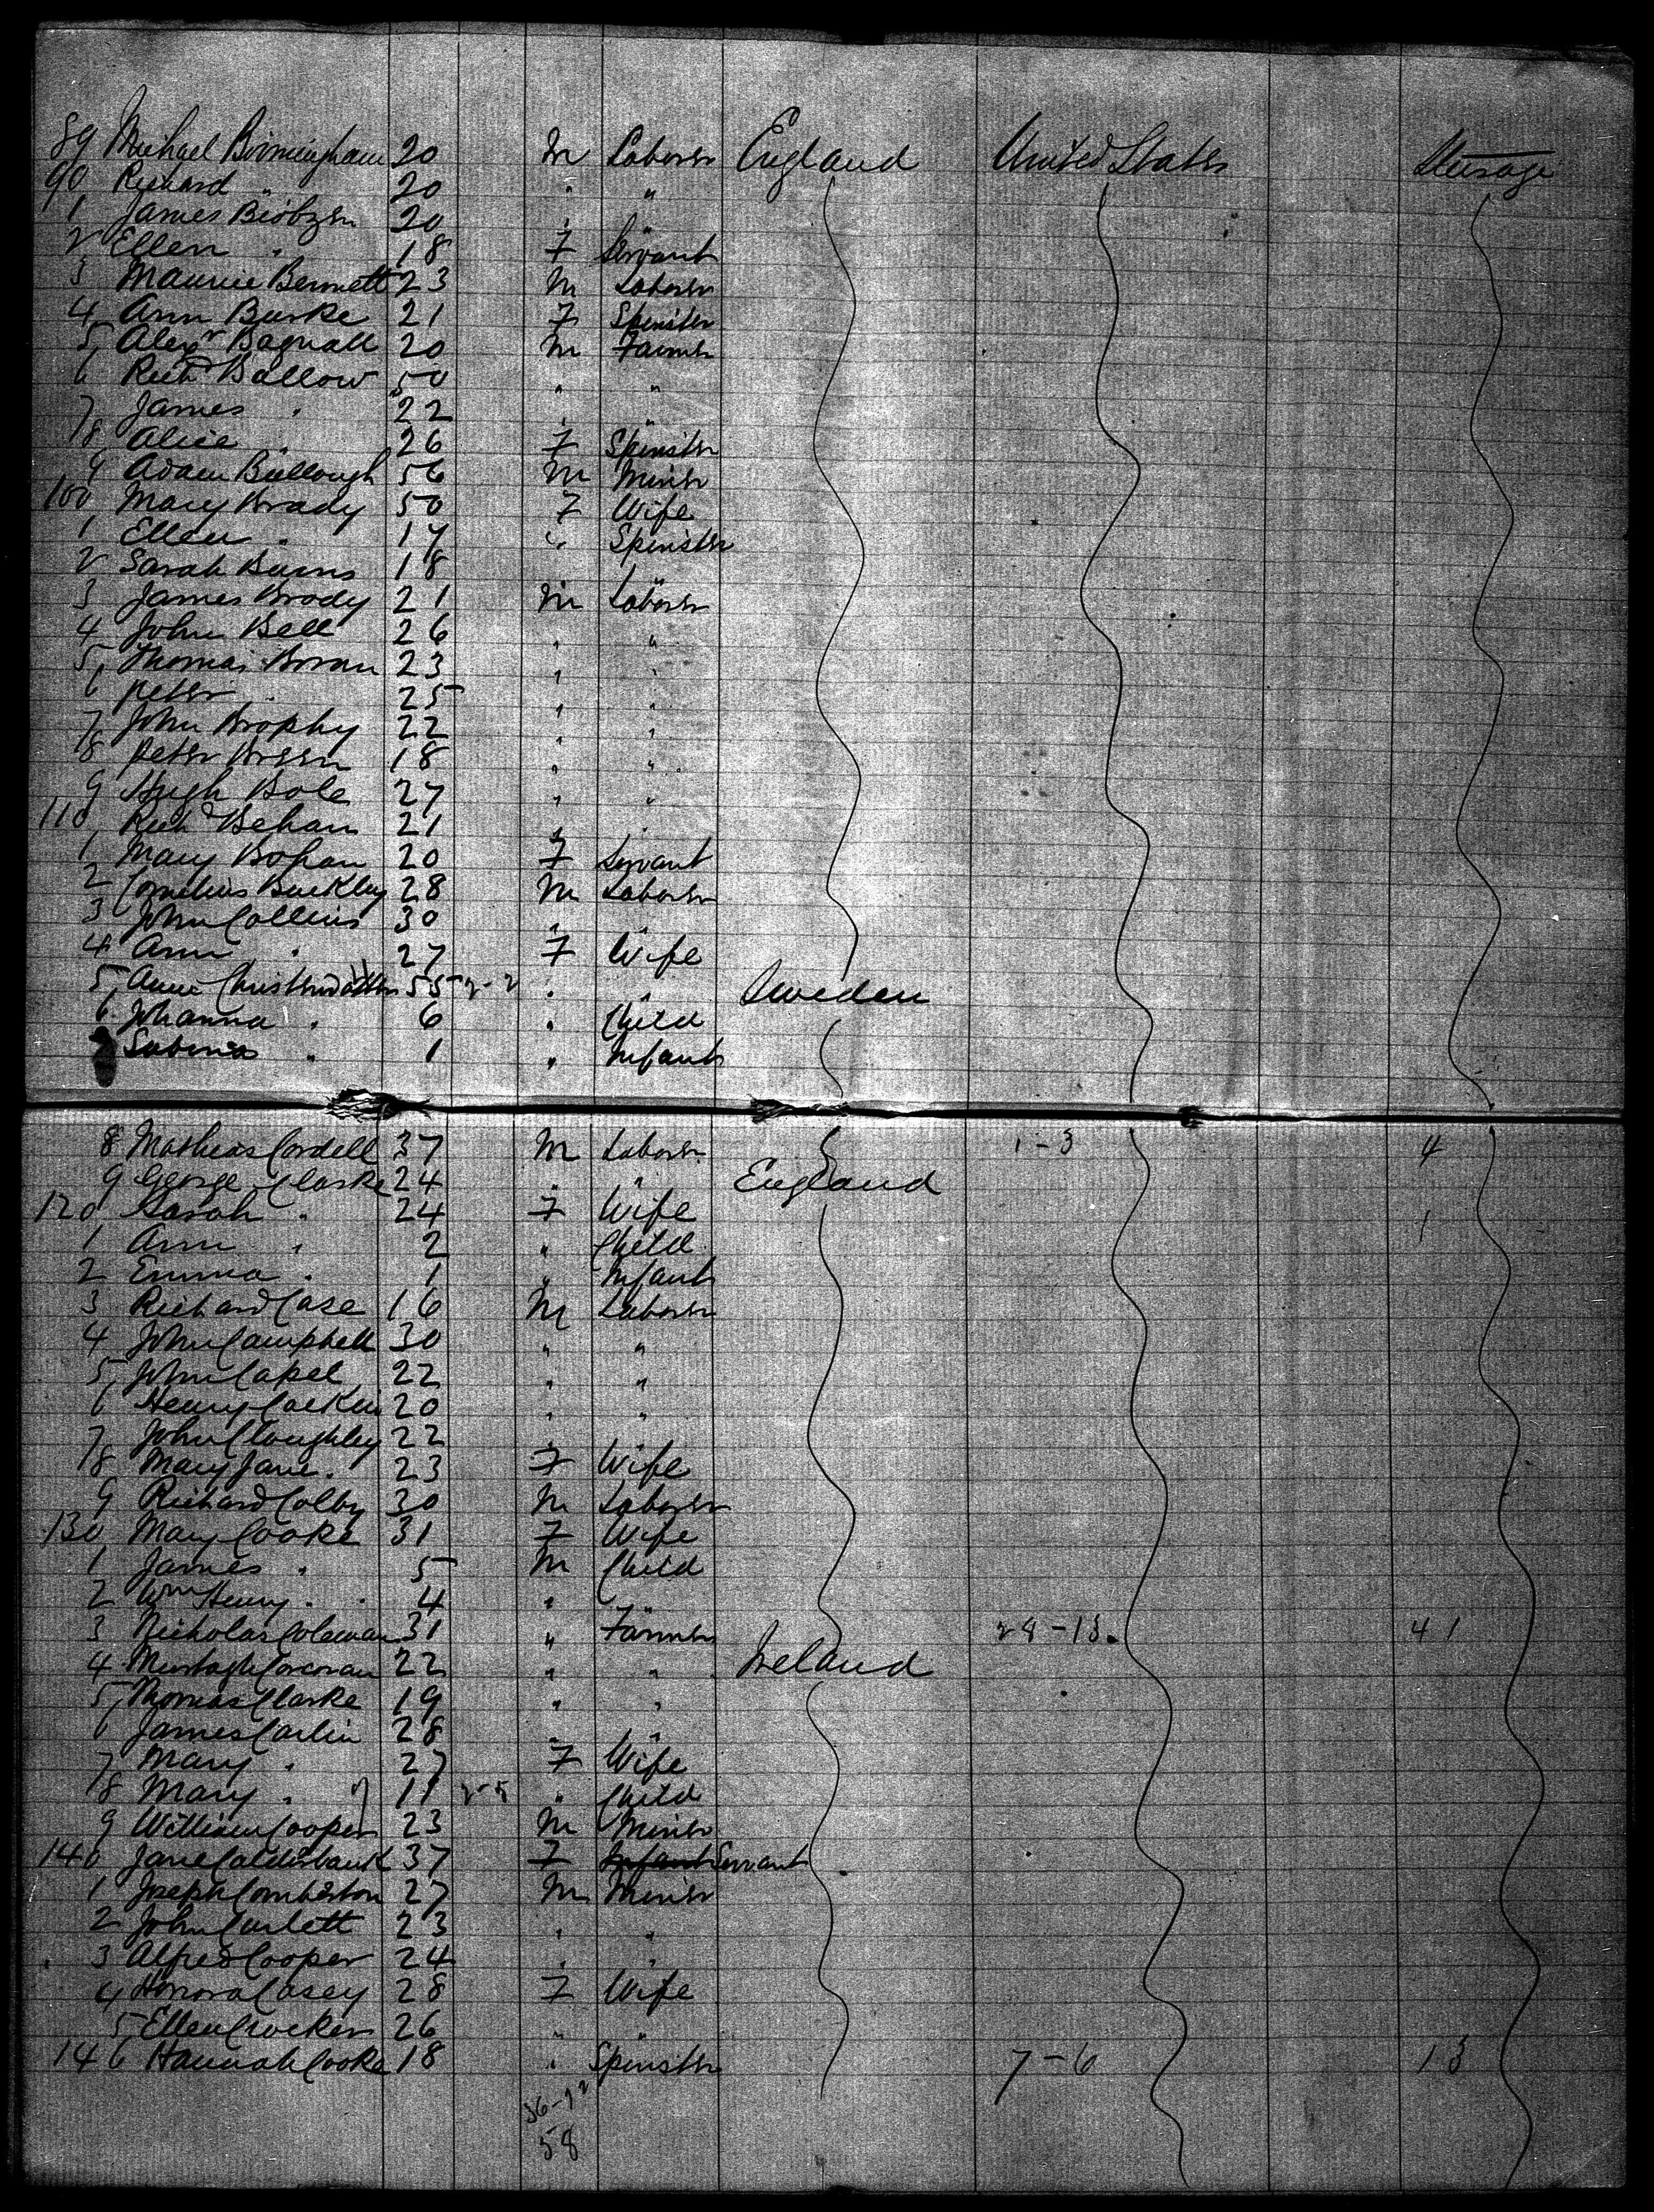 89 Michael Birmingham 20 M Laborer England United States Steerage
90 Richard " 20 " "
1 James 20 " "
2 Ellen " 18 F Servant
3 Maurice Bennett 23 M Laborer
4 Ann Burke 21 F Spinster
5 Alexr Bagnall 20 M Farmer
6 Richd Ballow 50 " "
7 James " 22 " "
8 Alice " 26 F Spinster
9 Adam Bullough 56 M Miner
100 Mary Brady 50 F Wife
1 Ellen " 17 " Spinster
2 Sarah Burns 18 " "
3 James Brody 21 M Laborer
4 John Bell 26 " "
5 Thomas Boran 23 " "
6 Peter " 25 " "
7 John Brophy 22 " "
8 Peter 18 " "
9 Hugh Bole 27 " "
110 Richd Behan 21 " "
1 Mary Bohan 20 F Servant
2 Cornelius Buckley 28 M Laborer
3 John Collins 30 " "
4 Ann " 27 F Wife
5 Anna 55 2-2 " " Sweden
6 Johanna " 6 " Child
Sabina " 1 " Infant
8 Mathias Cordell 37 M Laborer 1-3 4
9 George Clarke 24 " " England
120 Sarah " 24 F Wife 1
1 Ann " 2 " Child
2 Emma " 1 " Infant
3 Richard Case 16 M Laborer
4 John Campbell 30 " "
5 John Capel 22 " "
6 Henry 20 " "
7 John Cloughley 22 "
8 Mary Jane " 23 F Wife
9 Richard Colby 30 M Laborer
130 Mary Cooke 31 F Wife
1 James " 5 M Child
2 Wm Henry " 4 " "
3 Nicholas Coleman 31 " Farmer 28-13 41
4 Murtagh Corcoran 22 " " Ireland
5 Thomas Clarke 19 " "
6 James Carlin 28 " "
7 Mary " 27 F Wife
8 Mary " 11 2-5 " Child
9 William Cooper 23 M Miner
140 Jane Calderbank 37 F Infant Servant
1 Joseph Comberton 27 M Miner
2 John Corlett 23 " "
3 Alfred Cooper 24 " "
4 Honora Casey 28 F Wife
5 Ellen Crocker 26 " "
146 Hannah Cooke 18 " Spinster 7-6 13
58